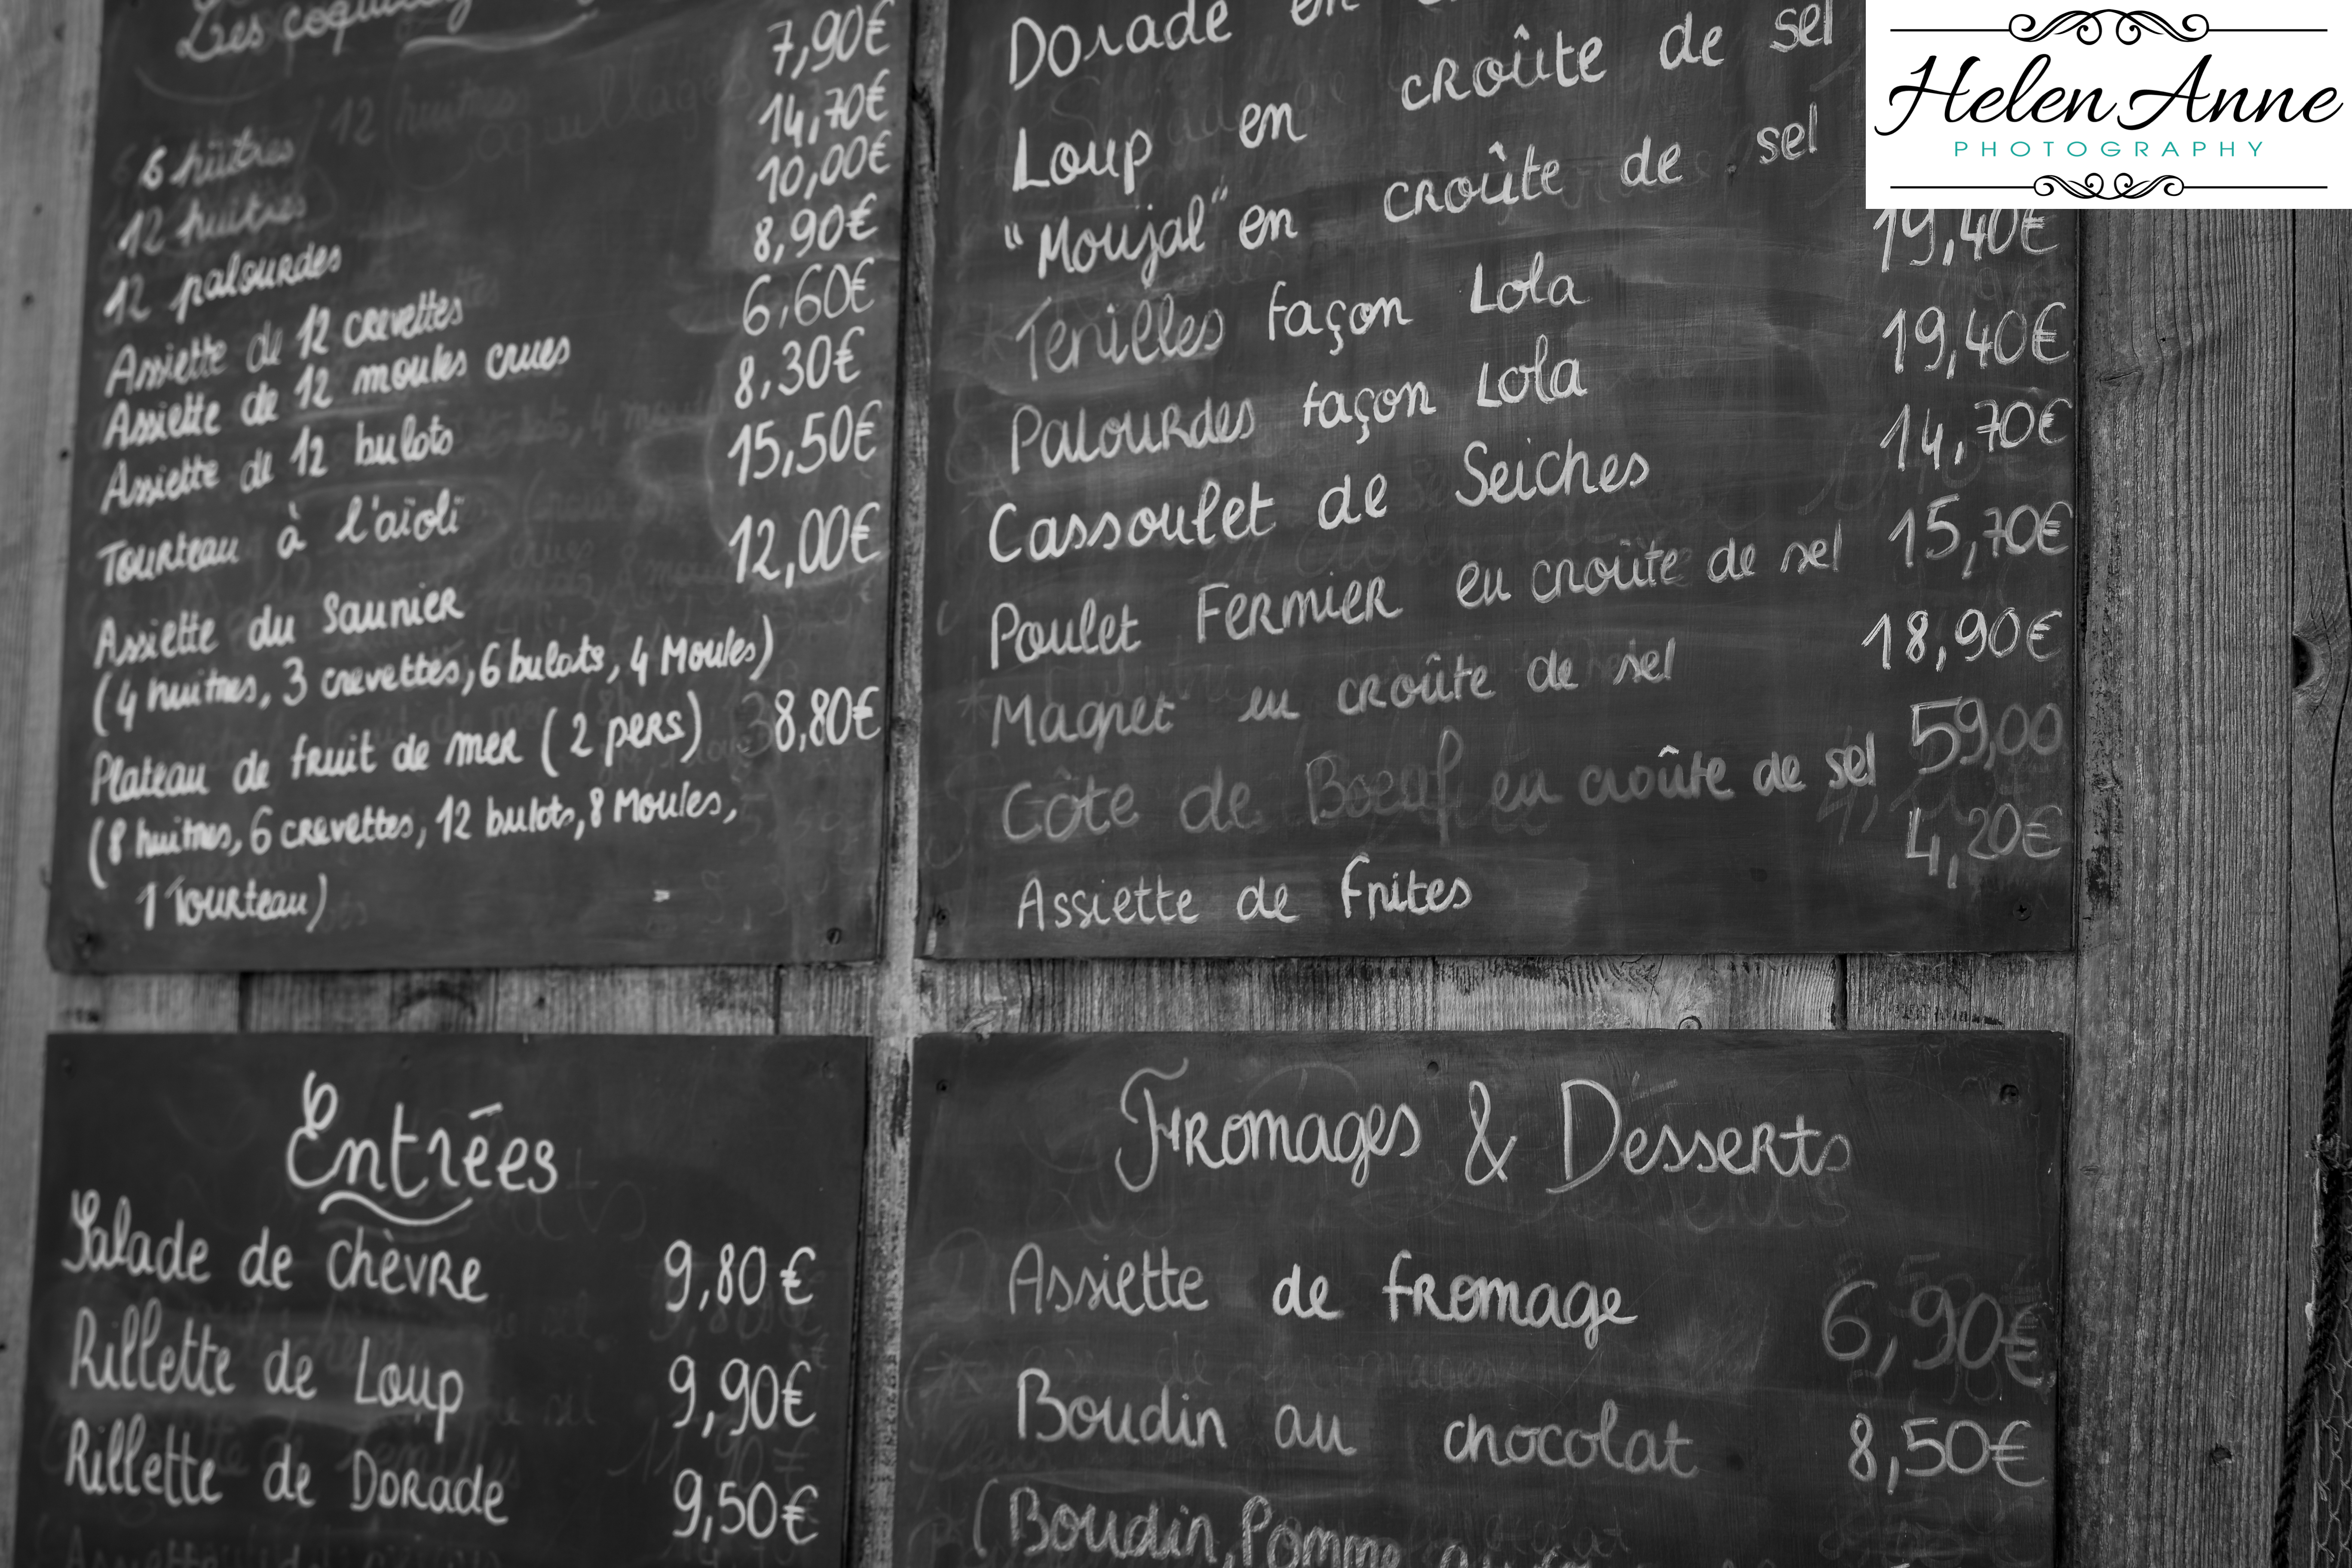 Les coquillages
7,90€
6 huitres
14,70€
12 huitres
10,00€
12 palourdes
8,90€
Assiette de 12 crevettes
6,60€
Assiette de 12 moules crues
8,30€
Assiette de 12 bulots
15,50€
Tourteau à l'aïoli
12,00€
Assiette du Saunier
(4 huitres, 3 crevettes, 6 bulots, 4 Moules)
Plateau de fruit de mer (2 pers) 38,80€
(8 huitres, 6 crevettes, 12 bulots, 8 Moules,
1 Tourteau)
Dorade en
Loup en croûte de sel
"Moujal" en croûte de sel
19,40€
Tenilles façon Lola
19,40€
Palourdes façon Lola
14,70€
Cassoulet de Seiches
15,70€
Poulet Fermier en croûte de sel
18,90€
Magret en croûte de sel
59,00
Côte de Boeuf en croûte de sel
4,20€
Assiette de Frites
Entrées
Salade de chèvre 9,80€
Rillette de Loup 9,90€
Rillette de Dorade 9,50€
Fromages & Desserts
Assiette de fromage 6,90€
Boudin au chocolat 8,50€
(Boudin, Pomme
Helen Anne
PHOTOGRAPHY